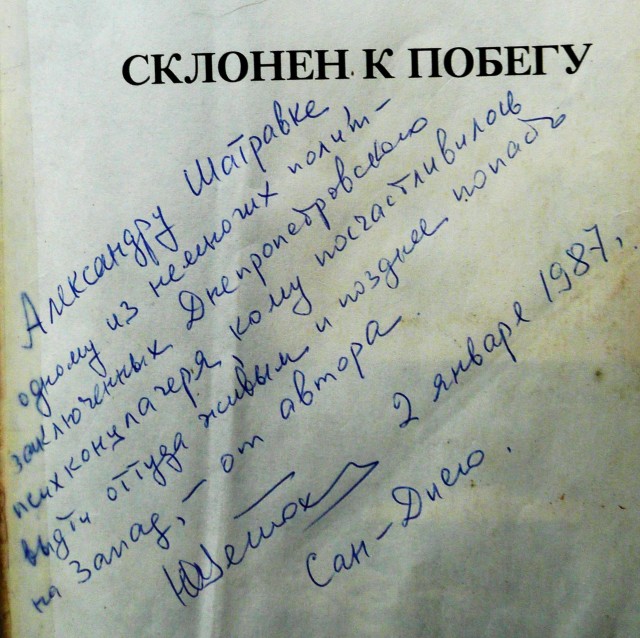 СКЛОНЕН К ПОБЕГУ
Александру Шатравке
одному из немногих полит-
заключенных Днепропетровского
психконцлагеря, кому посчастливилось
выдти оттуда живым и позднее попасть
на Запад, – от автора.
ЮВетох
2 января 1987,
Сан-Диего.